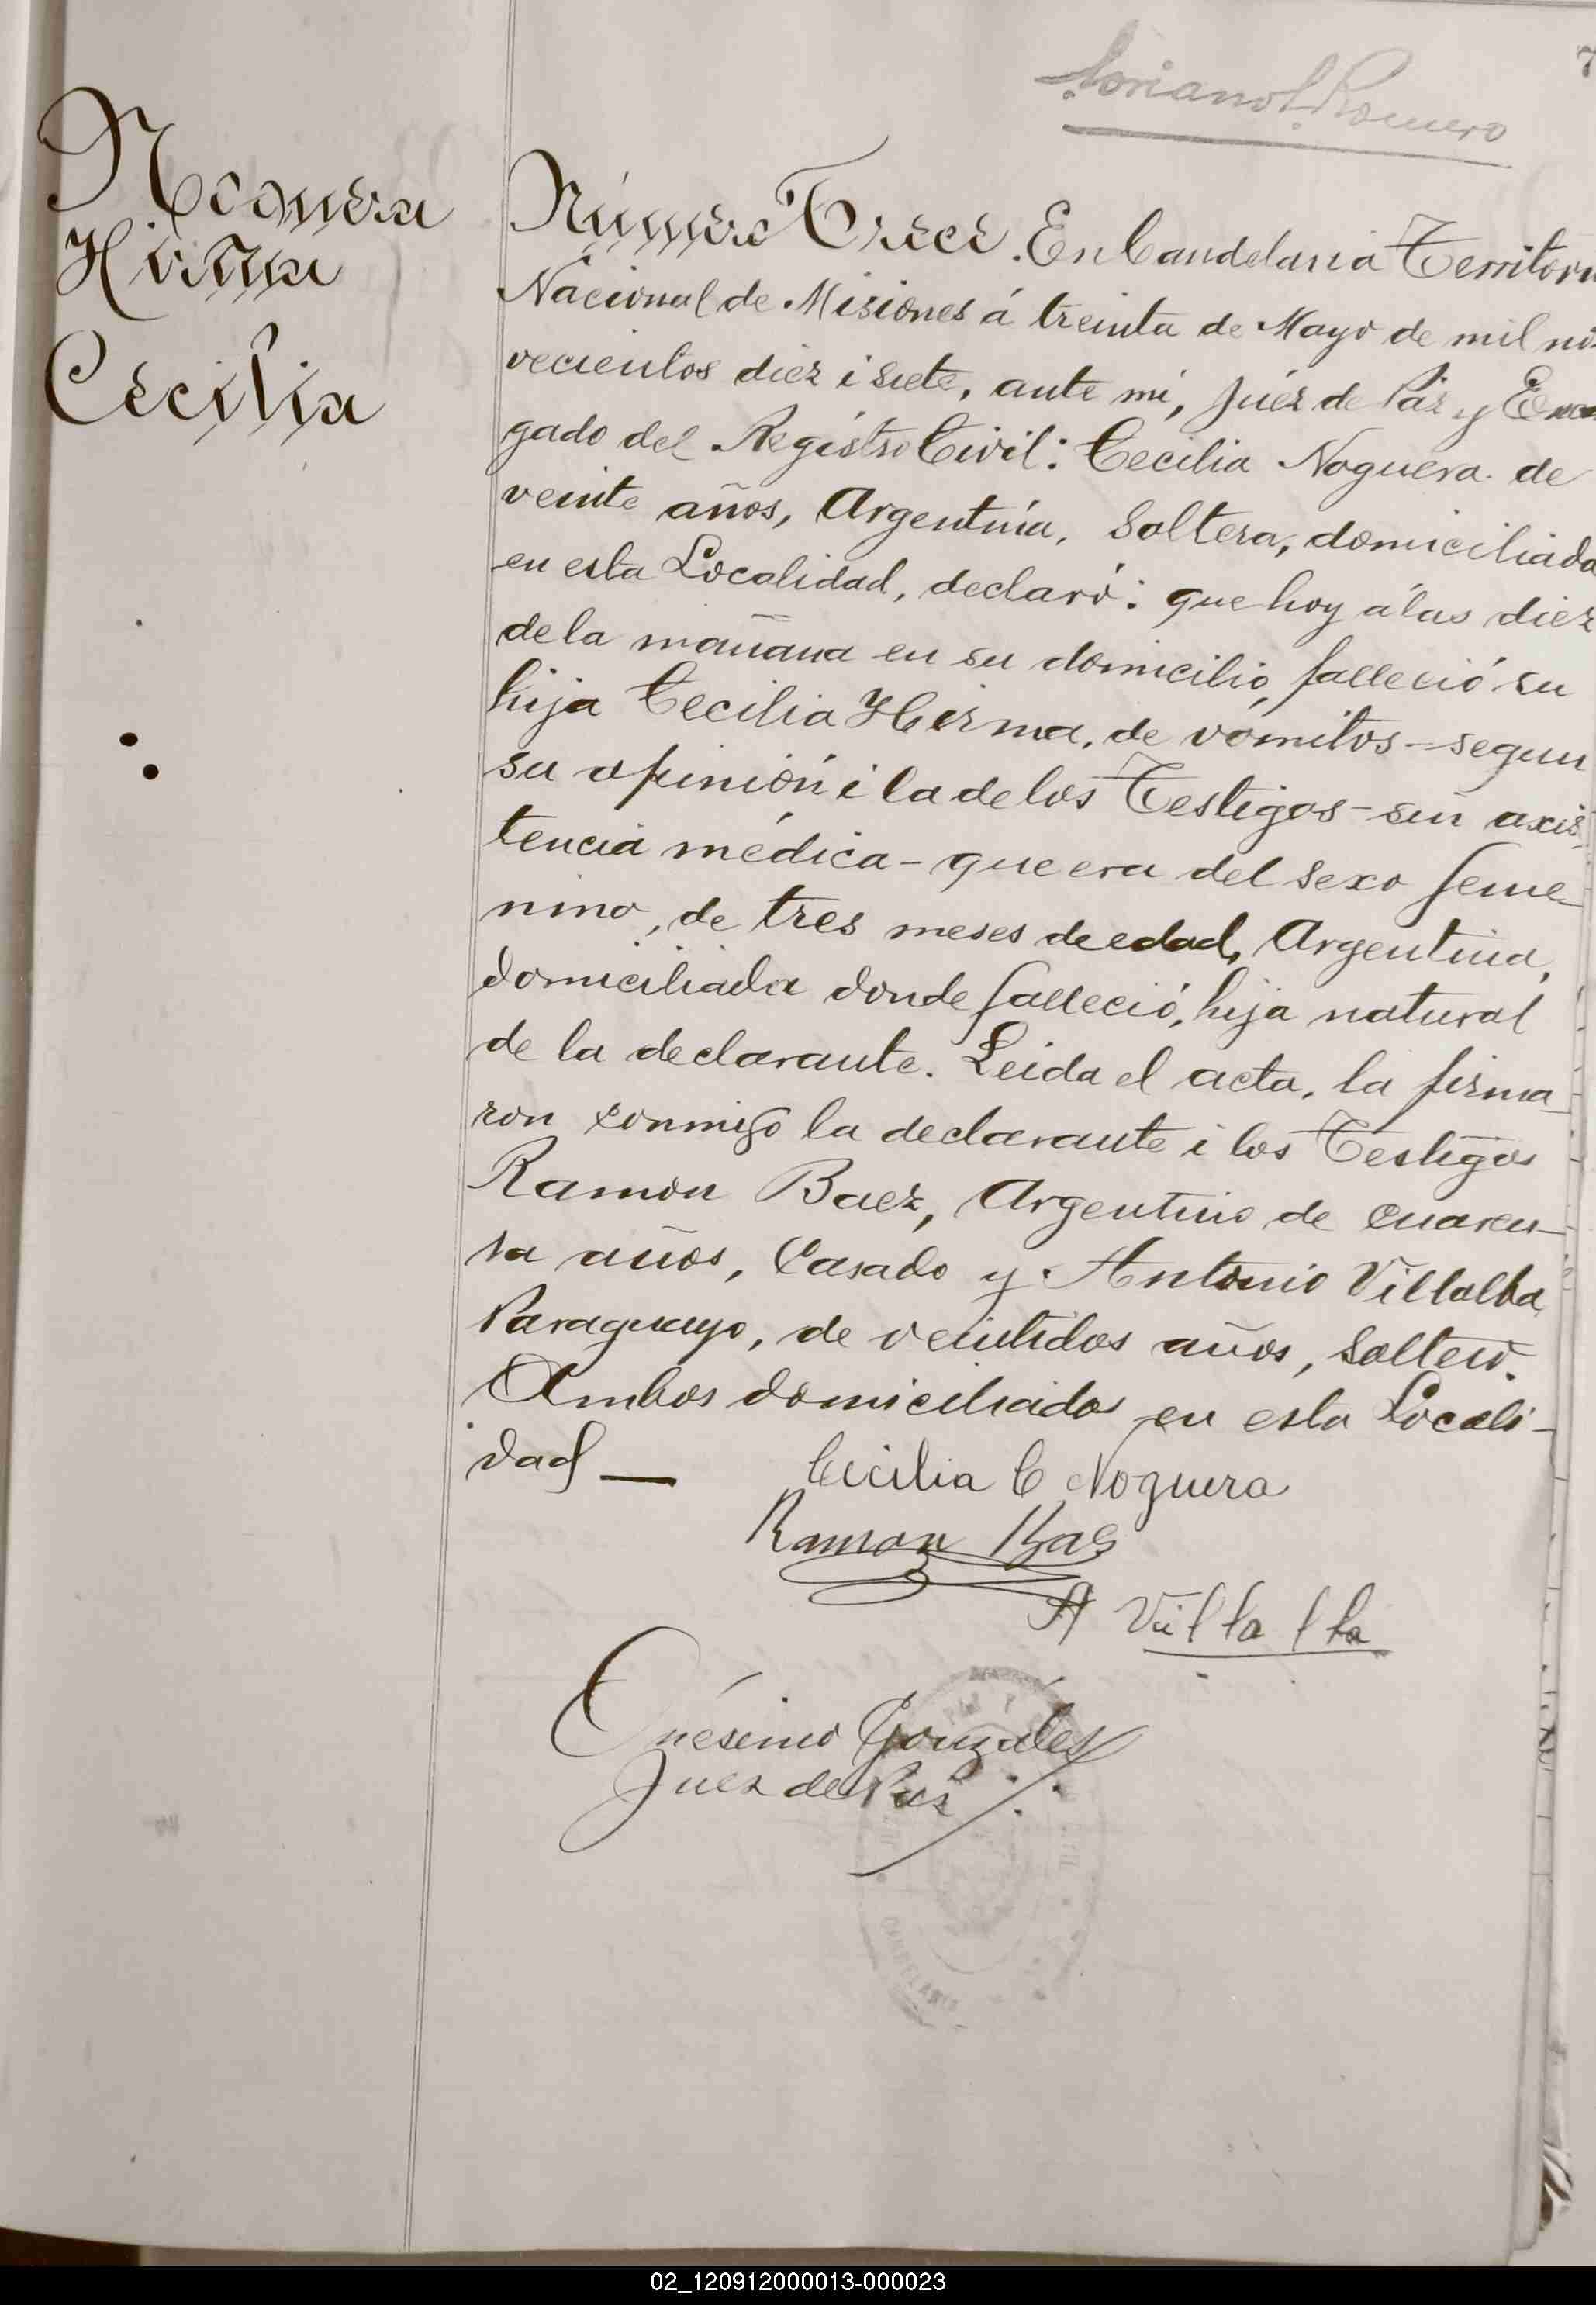 7
Soriano L. Romero
Noguera
Hirma
Cecilia
Número Trece. En Candelaria Territori
Nacional de Misiones á treinta de Mayo de mil no-
vecientos diez i siete, ante mi, Juéz de Páz y Enca
gado del Registro Civil: Cecilia Noguera de
veinte años, Argentina, Soltera, domiciliada
en esta Localidad, declaró: que hoy á las diez
de la mañana en su domicilio, falleció su
hija Cecilia Hirma, de vómitos - segun
su opinión i la de los Testigos - sin axis-
tencia médica - que era del sexo feme-
nino, de tres meses de edad, Argentina,
domiciliada donde falleció, hija natural
de la declarante. Leida el acta, la firma-
ron conmigo la declarante i los Testigos
Ramon Baez, Argentino de cuaren-
ta años, Casado y Antonio Villalba
Paraguayo, de veintidos años, Soltero.
Ambos domiciliados en esta Locali-
dad —
Cicilia C Noguera
Ramon Baes
A Villalba
Onésimo González
Juez de Paz
CANDELARIA
02_120912000013-000023